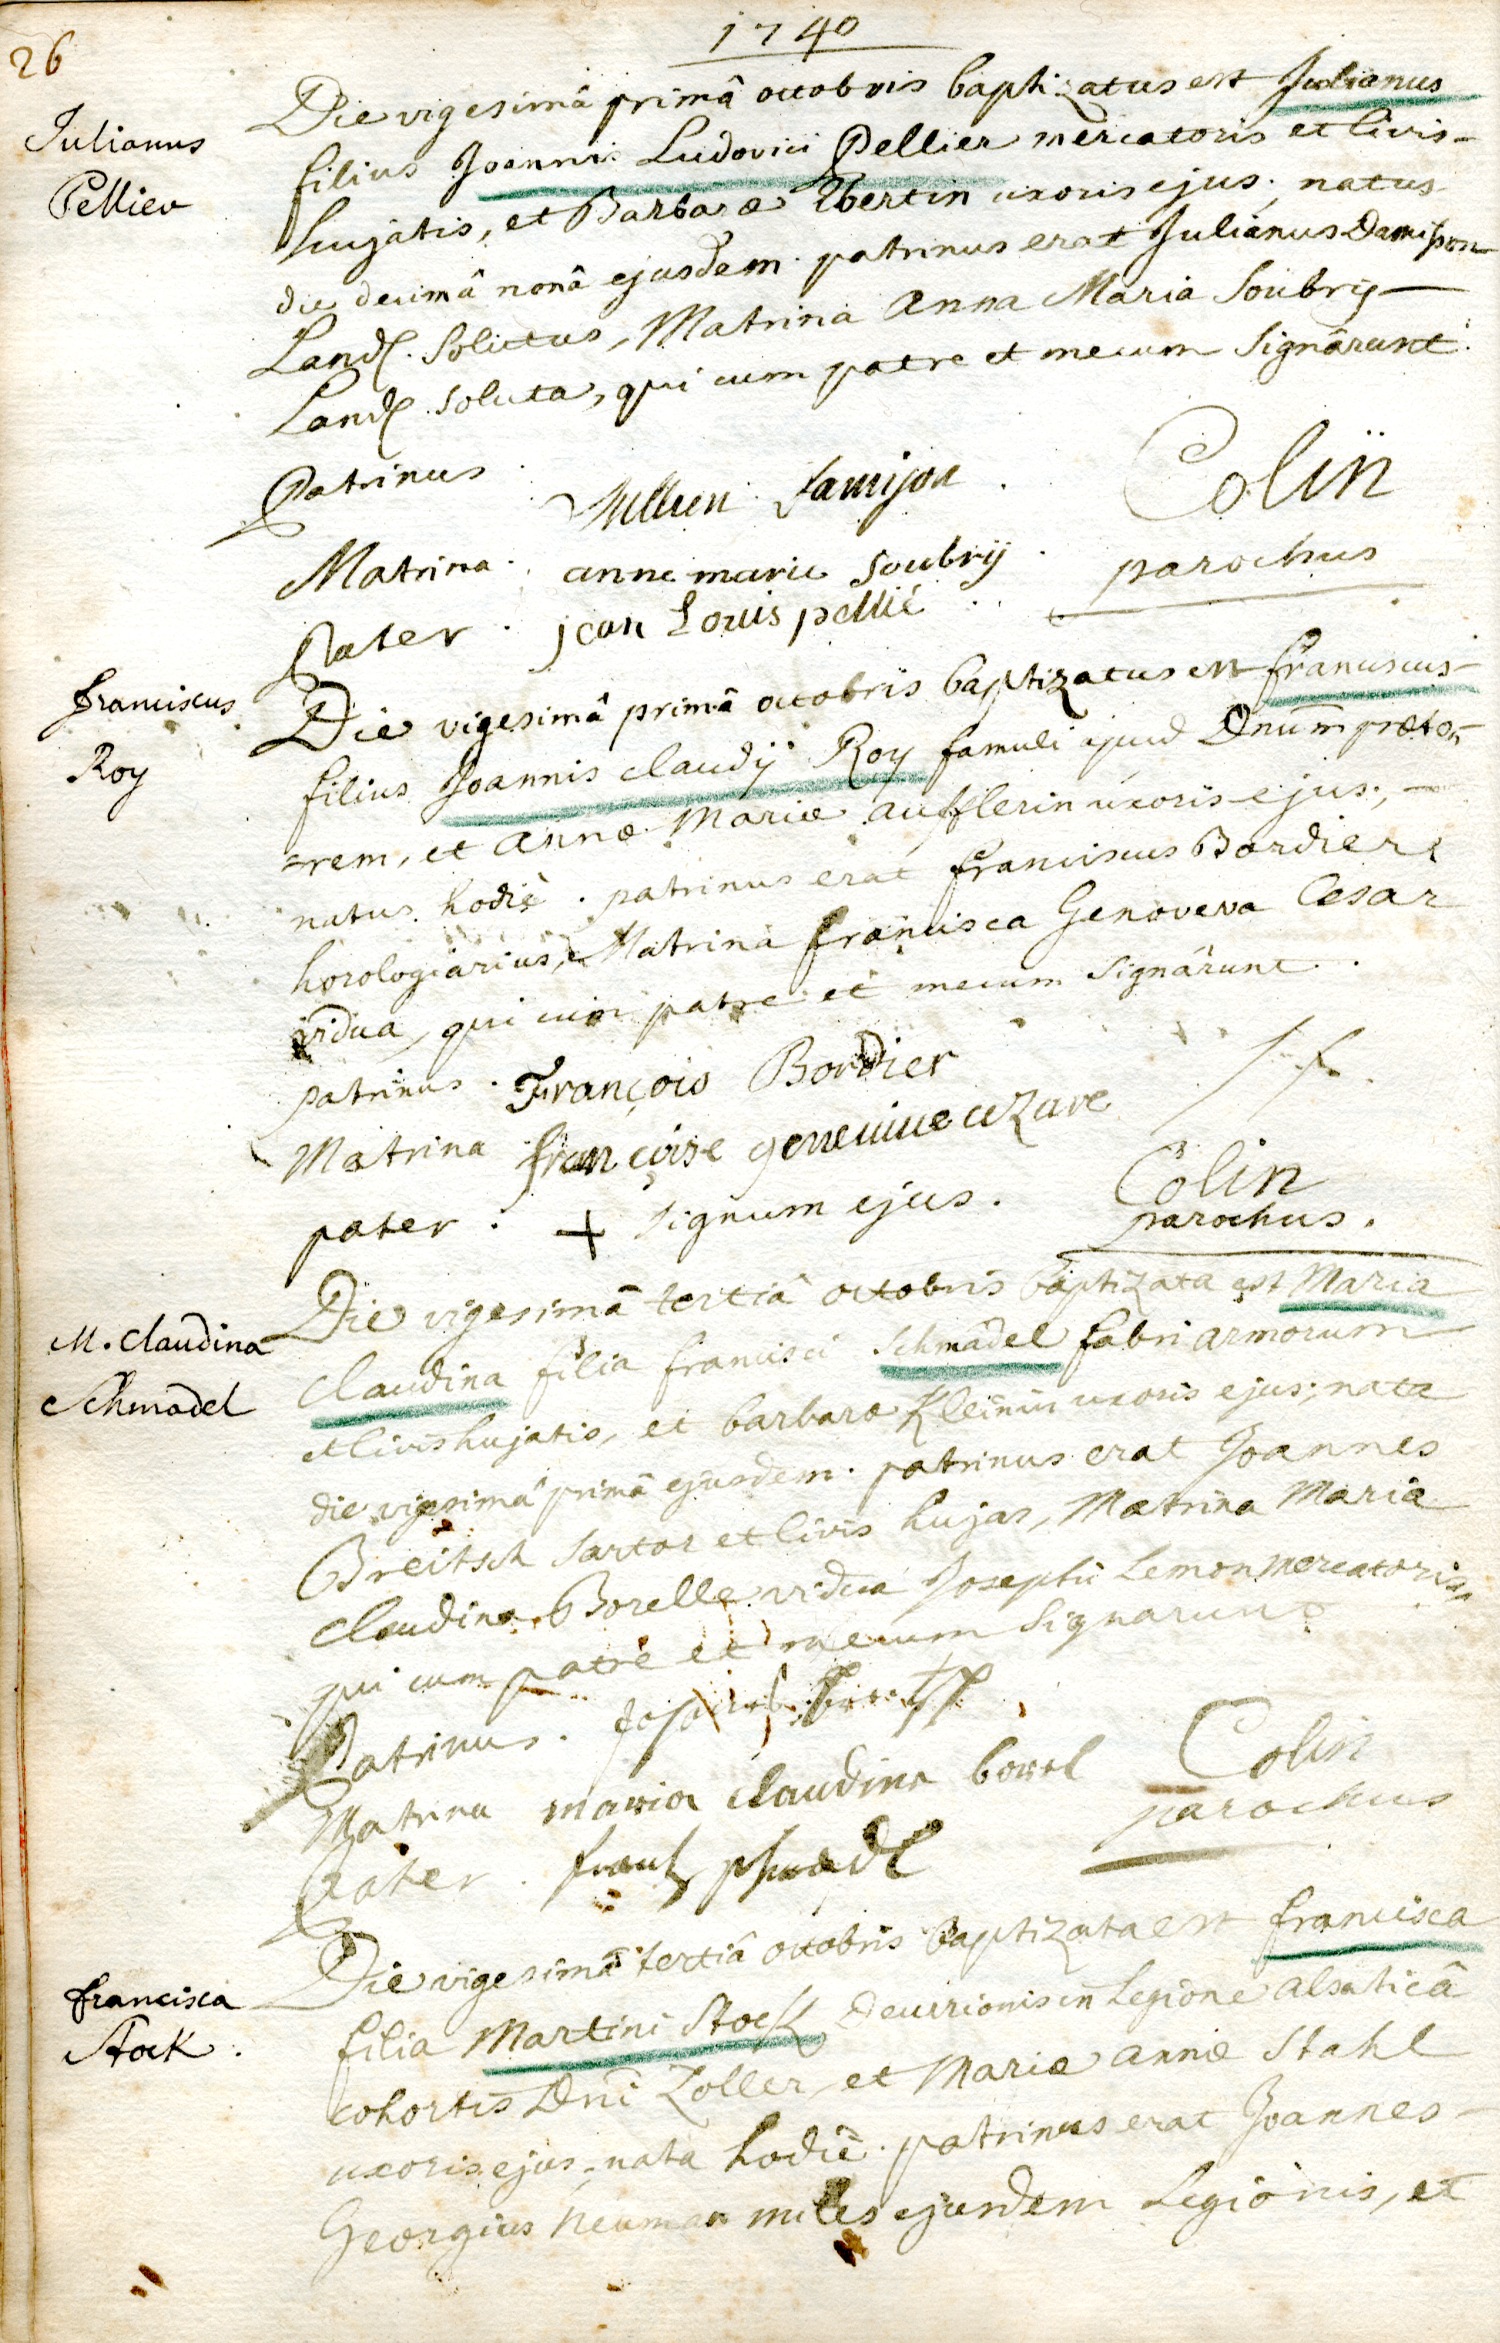 26
1740
Julianus
Pellier
Die vigesimâ primâ octobris baptizatus est Julianus
filius Joannis Ludovici Pellier mercatoris et Civis
hujatis, et Barbaræ Ebertin uxoris ejus; natus
die decimâ nonâ ejusdem. patrinus erat Julianus Damison
Land. solutus, Matrina Anna Maria Soubry
Land. soluta, qui cum patre et mecum signârunt.
Patrinus Jullien Damijon
Colin
Matrina. anne marie Soubrÿ
parochus
Pater. jean Louis pellié
franciscus
Roy
Die vigesimâ primâ octobris baptizatus est franciscus
filius Joannis claudÿ Roy famuli apud Dnum præto-
-rem, et Annæ Mariæ aufflerin uxoris ejus;
natus hodiè. patrinus erat franciscus Bordier
horologiarius, Matrina francisca Genoveva Cesar
vidua, qui cum patre et mecum signârunt.
patrinus. François Bordier
Matrina françoise genneuiue cezare
pater. + signum ejus.
Colin
parochus.
M. claudina
Schmadel
Die vigesimâ tertiâ octobris baptizata est Maria
claudina filia francisci Schmadel fabri armorum
et Civis hujatis, et barbaræ Kleinin uxoris ejus; nata
die vigesimâ primâ ejusdem. patrinus erat Joannes
Breitsch sartor et Civis hujas, Matrina Maria
claudina Borelle vidua Josephi Lemon mercatoris
qui cum patre et mecum signarunt
Patrinus.
Colin
Matrina maria claudina borel
parochus
Pater. frantz
francisca
Stock.
Die vigesimâ tertiâ octobris baptizata est francisca
filia Martini Stock decurionis in Legione alsaticâ
cohortis Dni Zoller, et Mariæ annæ Stahl
uxoris ejus, nata hodiè. patrinus erat Joannes
Georgius Neuman miles ejusdem Legionis, et